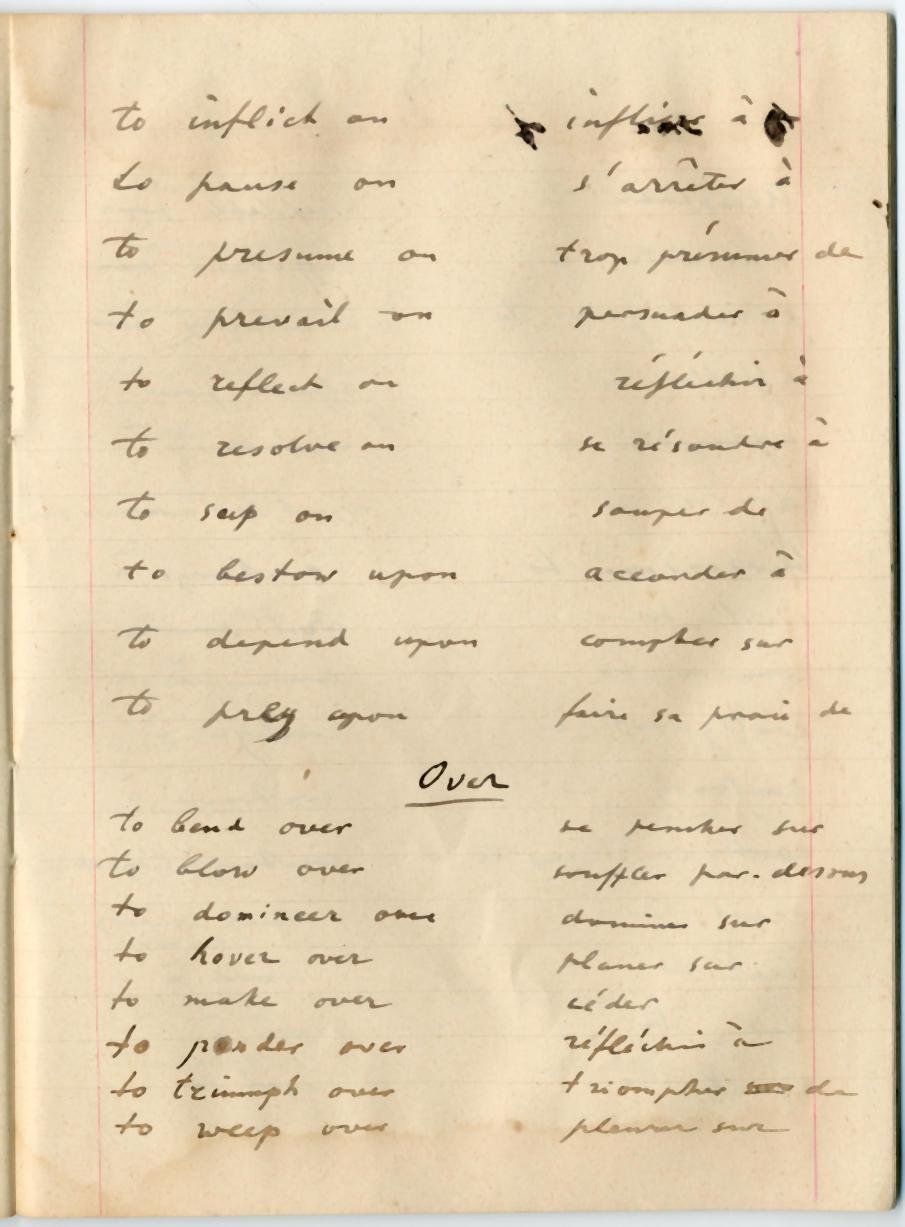 to inflict on infliger à
to pause on s'arrêter à
to presume on trop présumer de
to prevail on persuader à
to reflect on réfléchir à
to resolve on se résoudre à
to sup on souper de
to bestow upon accorder à
to depend upon compter sur
to prey upon faire sa proie de
Over
to bend over se pencher sur
to blow over souffler par-dessus
to domineer over dominer sur
to hover over planer sur
to make over céder
to ponder over réfléchir à
to triumph over triompher de
to weep over pleurer sur